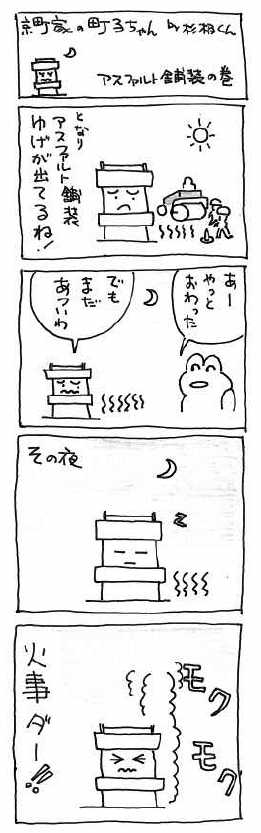 京町家の町子ちゃん by 杉相くん
アスファルト舗装の巻
となり
アスファルト舗装
ゆげが出てるね!
あー
やっと
おわった
でも
まだ
あついわ
その夜
z
モク
モク
火事ダー!!